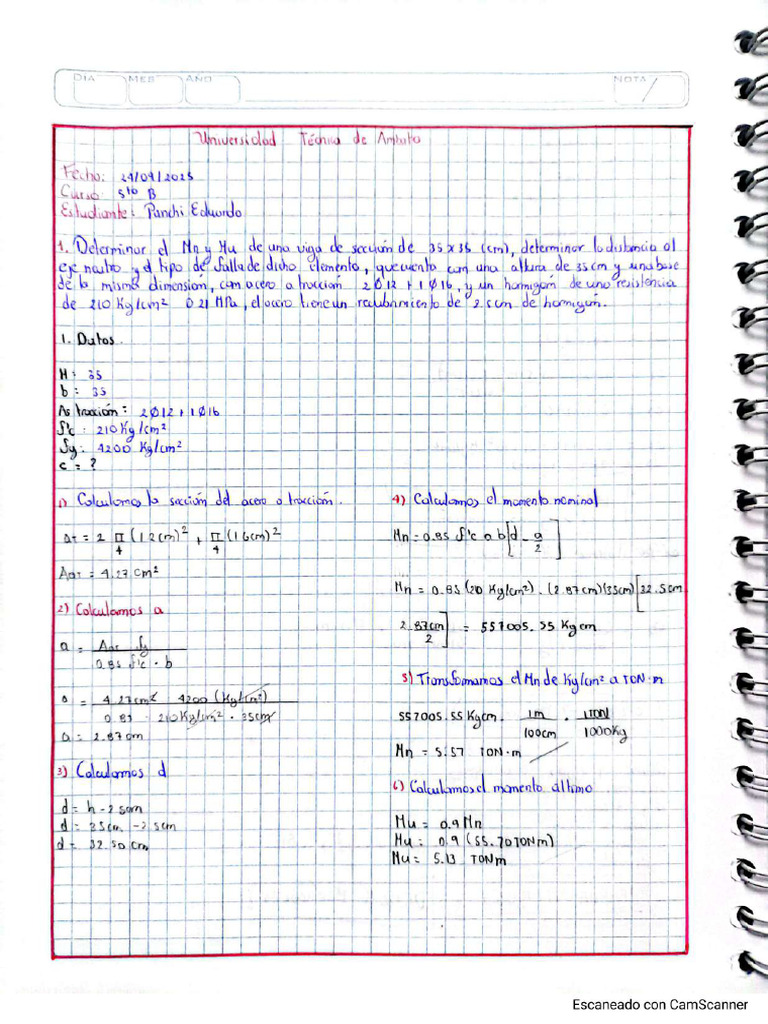 DIA MES AÑO NOTA
Universidad Técnica de Ambato
Fecha: 24/09/2025
Curso: 5to B
Estudiante: Panchi Eduardo
1. Determinar el Mn y Mu de una viga de sección de 35x35 (cm), determinar la distancia al
eje neutro y el tipo de falla de dicho elemento, que cuenta con una altura de 35cm y una base
de la misma dimension, con acero a tracción 2Ø12+1Ø16, y un hormigón de una resistencia
de 210 Kg/cm² o 21 MPa, el acero tiene un recubrimiento de 2.5cm de hormigón.
1. Datos.
H: 35
b: 35
As tracción: 2Ø12+1Ø16
f'c: 210 Kg/cm²
fy: 4200 Kg/cm²
c = ?
1) Calculamos la sección del acero a tracción.
AT = 2 π/4 (1.2cm)² + π/4 (1.6cm)²
AaT = 4.27 cm²
2) Calculamos a
a = AaT fy / 0.85 f'c · b
a = 4.27cm² 4200 (Kg/cm²) / 0.85 · 210Kg/cm² · 35cm
a = 2.87 cm
3) Calculamos d
d = h - 2.5cm
d = 35cm - 2.5cm
d = 32.50 cm
4) Calculamos el momento nominal
Mn = 0.85 f'c a b [d - a/2]
Mn = 0.85 (210 Kg/cm²) . (2.87cm)(35cm) [32.5cm
2.87cm/2] = 557005.55 Kgcm
5) Transformamos el Mn de Kg/cm² a TON·m
557005.55 Kgcm . 1m/100cm . 1TON/1000Kg
Mn = 5.57 TON·m
6) Calculamos el momento último
Mu = 0.9 Mn
Mu = 0.9 (55.70 TONm)
Mu = 5.13 TONm
Escaneado con CamScanner